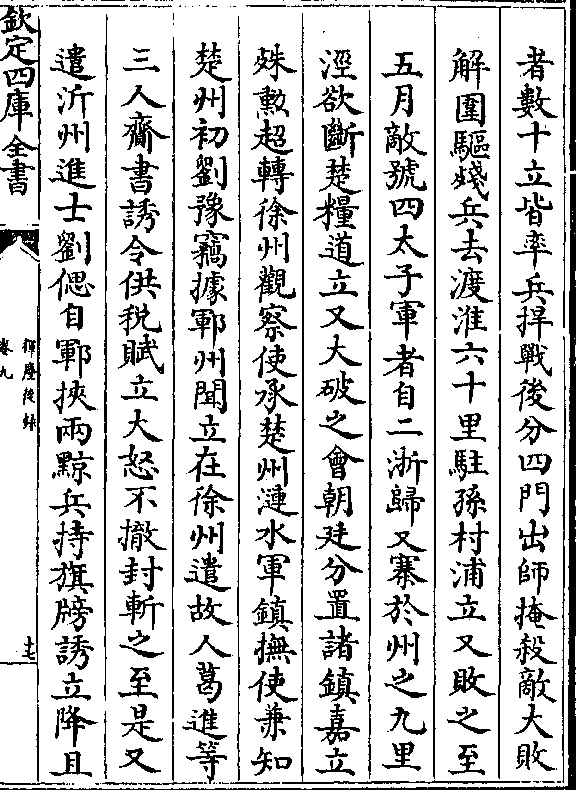 者數十立皆率兵捍戰後分四門出師掩殺敵大敗
解圍驅殘兵去渡淮六十里駐孫村浦立又敗之至
五月敵號四太子軍者自二浙歸又寨於州之九里
涇欲斷楚糧道立又大破之會朝廷分置諸鎮嘉立
殊勲超轉徐州觀察使承楚州漣水軍鎮撫使兼知
楚州初劉豫竊據鄆州聞立在徐州遣故人葛進等
三人齎書誘令供稅賦立大怒不撤封斬之至是又
遣沂州進士劉偲自鄆挾兩黥兵持旗牓誘立降且
欽定四庫全書
揮麈後録
卷九
十七